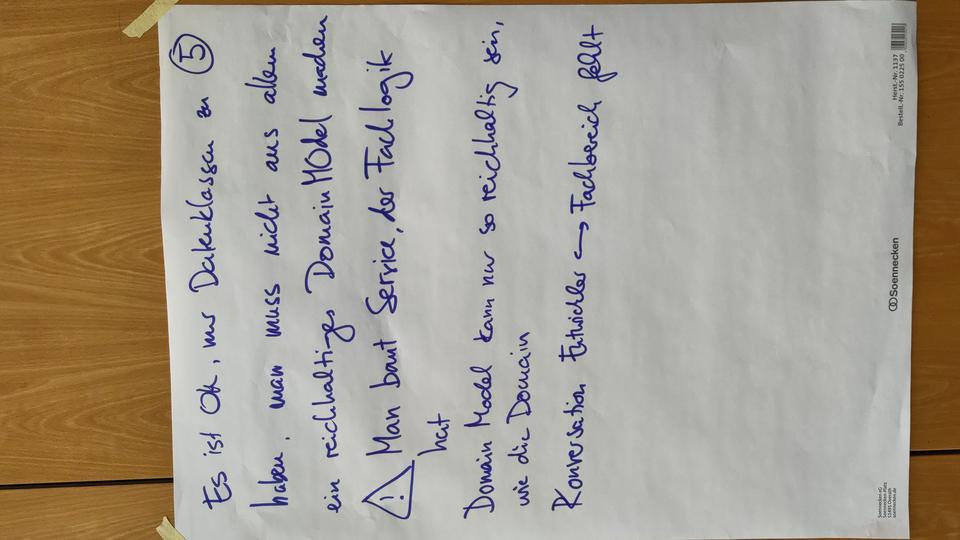 Es ist Ok, nur Datenklassen zu ⑤
haben, man muss nicht aus allem
ein reichhaltiges DomainMOdel machen
⚠ Man baut Service, der Fachlogik
hat
Domain Model kann nur so reichhaltig sein,
wie die Domain
Konversation Entwickler ↔ Fachbereich fehlt
Herst.-Nr. 1137
Bestell.-Nr. 155 0225 00
Soennecken
Soennecken eG
Soennecken-Platz
51491 Overath
soennecken.de